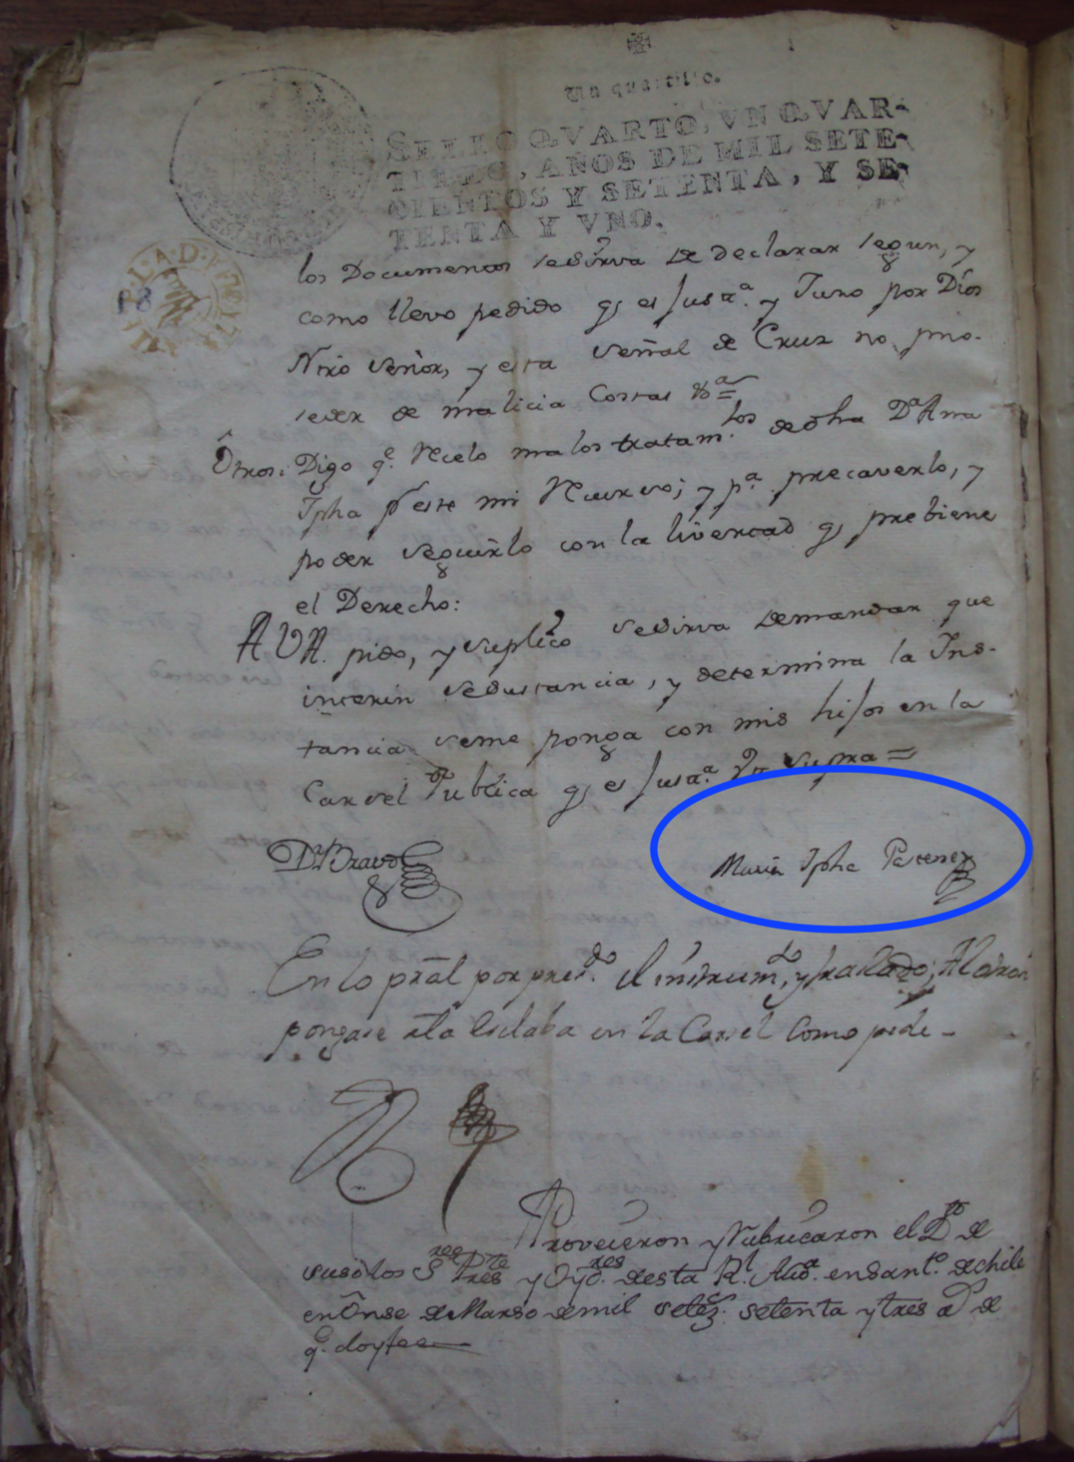 Un quartillo.
SELLO QVARTO, VN QVAR-
TILLO, AÑOS DE MIL SETE-
CIENTOS Y SETENTA, Y SE-
TENTA Y VNO.
18
los Documentos sesirva de declarar segun, y
como llevo pedido q es Just.ª y Juro por Dios
Ntro señor, y esta señal de Cruz no pro-
seder de malicia Costas &ª =
Otrosi: Digo q.e Recelo malos tratam.tos de dha D.ª Ana
Jpha pr este mi Recurso; y p.ª precaverlo, y
poder seguirlo con la livertad q prebiene
el Derecho:
A V A. pido, y suplico sesirva demandar que
interin sesustancia, y determina la Ins-
tancia seme ponga con mis hijos en la
Carsel Publica q es Just.ª Vt supra =
D.r Bravo
Maria Jpha Pastene
En lo pral por pres.do el instrum.to, y traslado; Al otrosi
pongase a la Esclaba en la Carsel Como pide -
Proveieron y Rubricaron el D.to de
susō los S.res Pres.te y Oyd.res desta R.l Aud.ª en Sant.o de chile
en Onse de Marso de mil setez.s setenta y tres a.s de
q.e doy fee